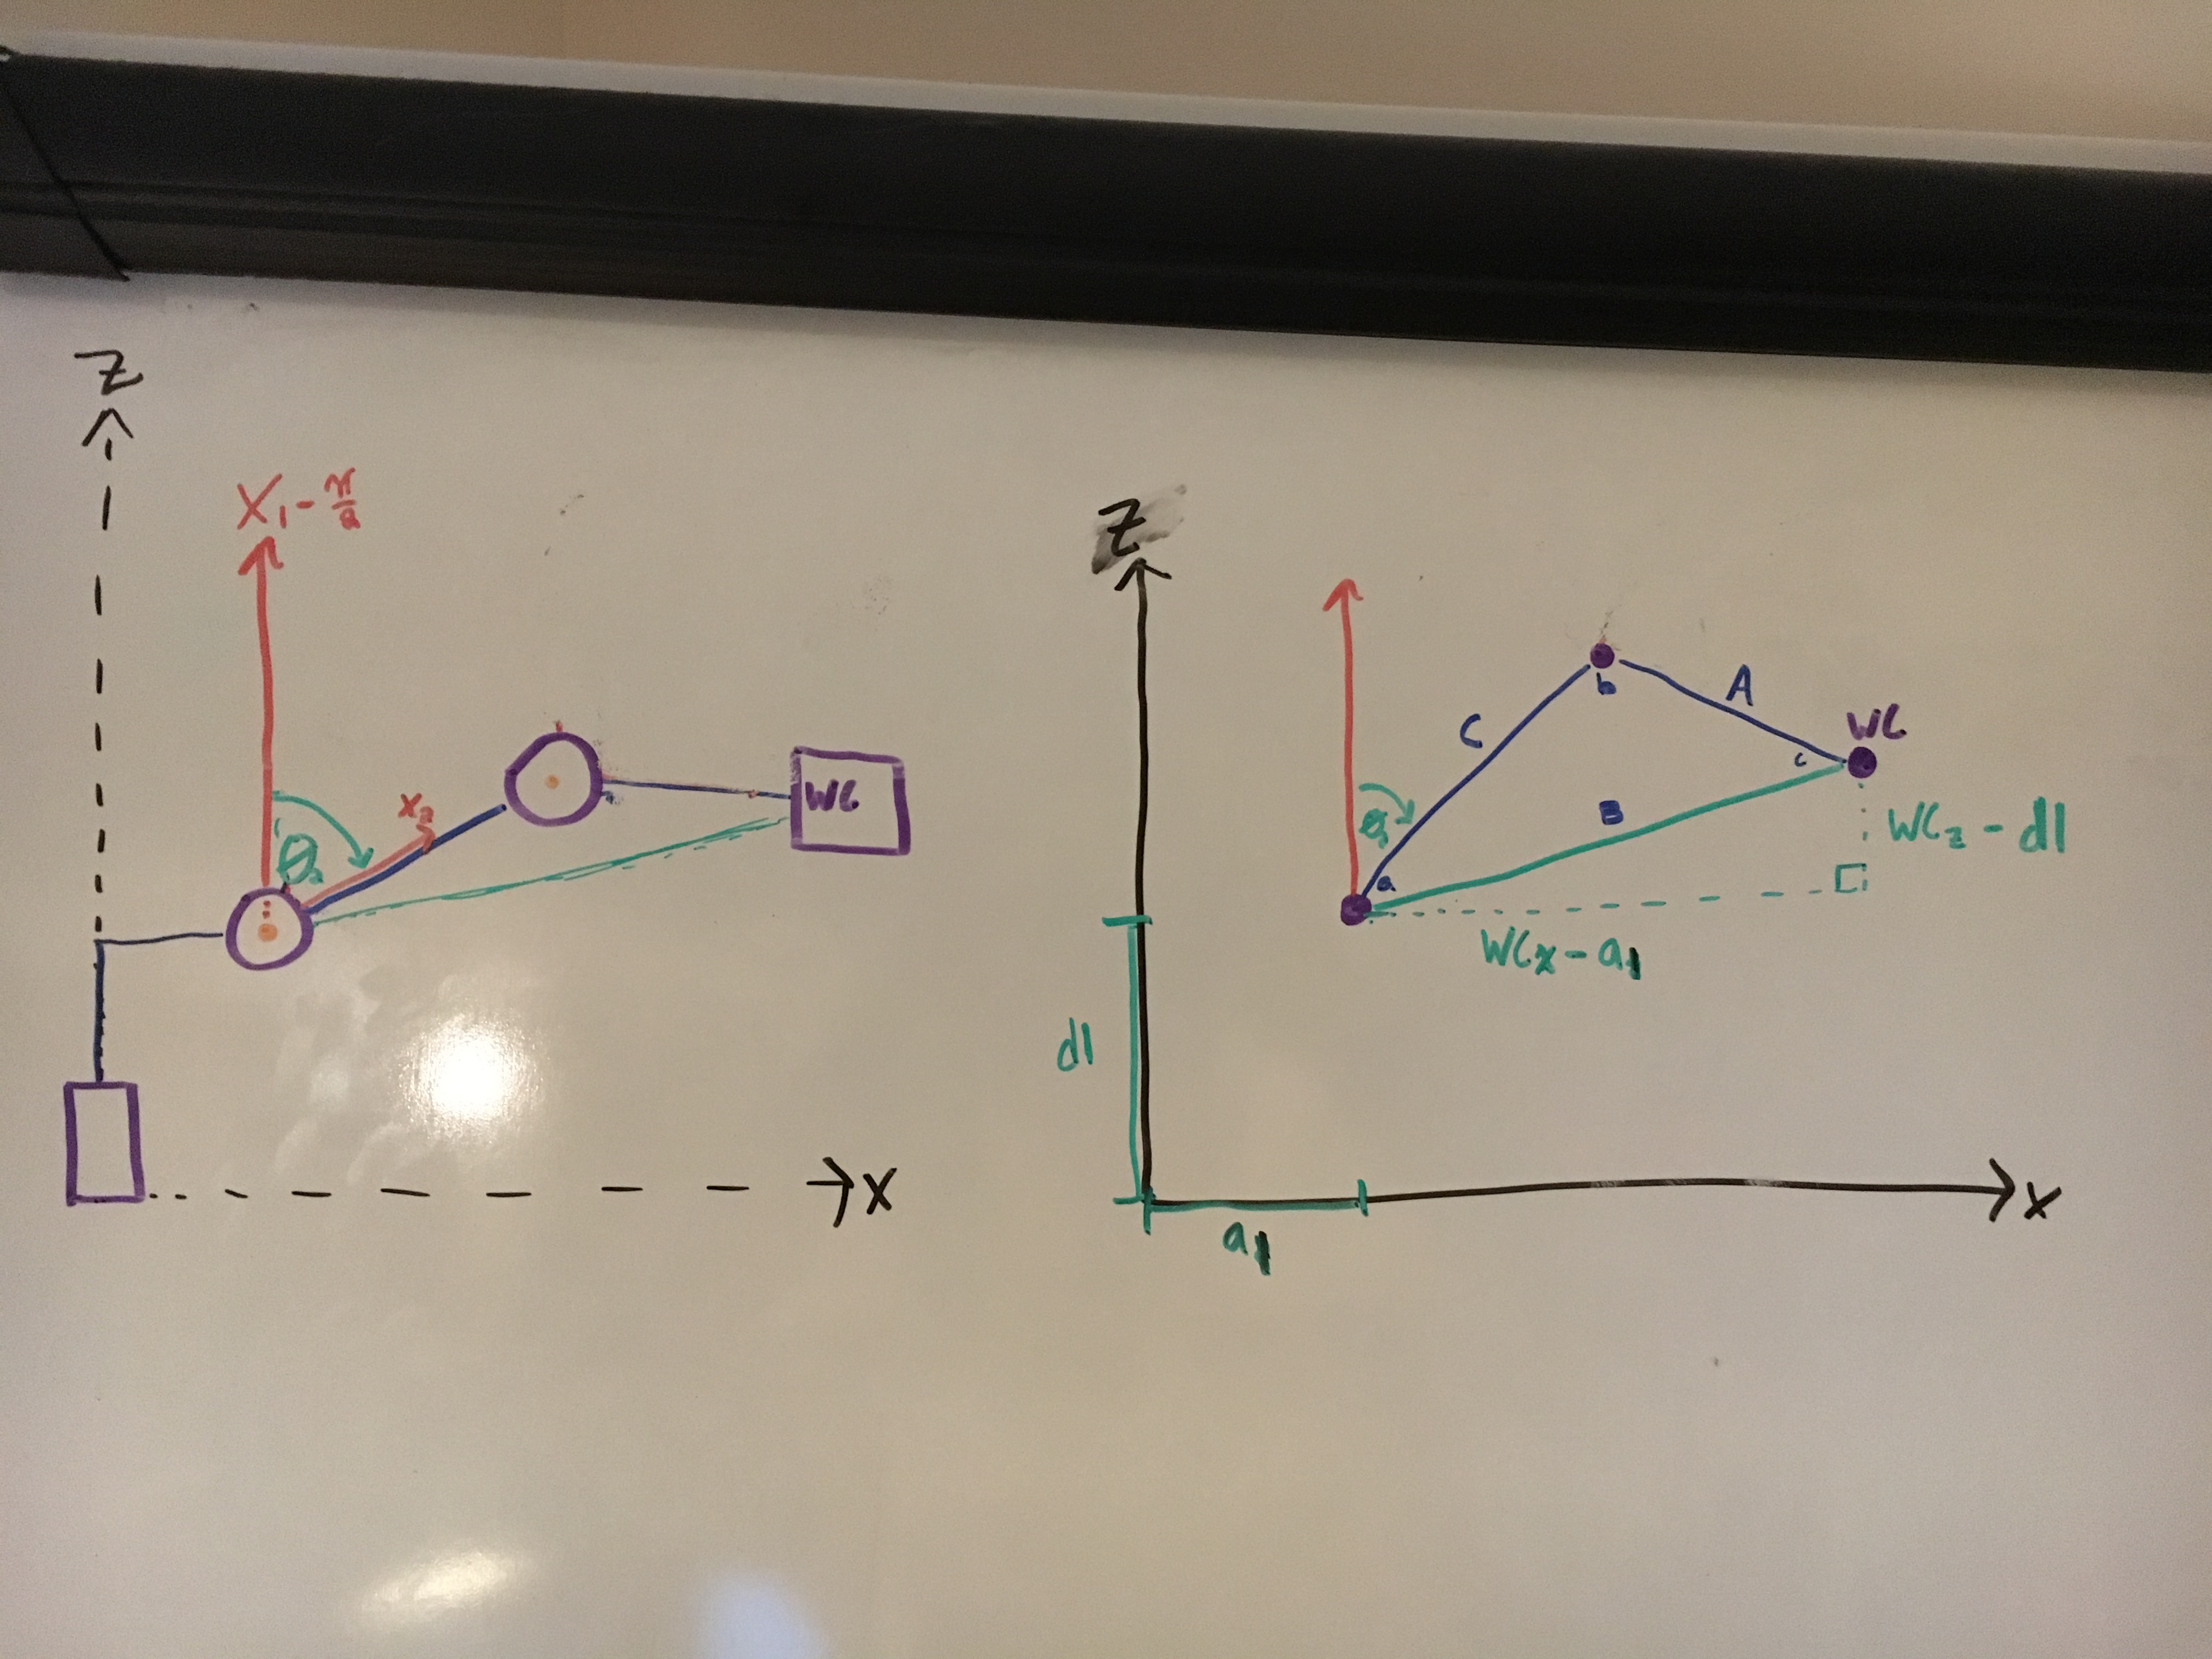 Z
X₁ - π/2
X₂
θ₂
WC
X
Z
b
A
C
WC
c
B
WCz - d1
a
WCx - a1
d1
X
a1